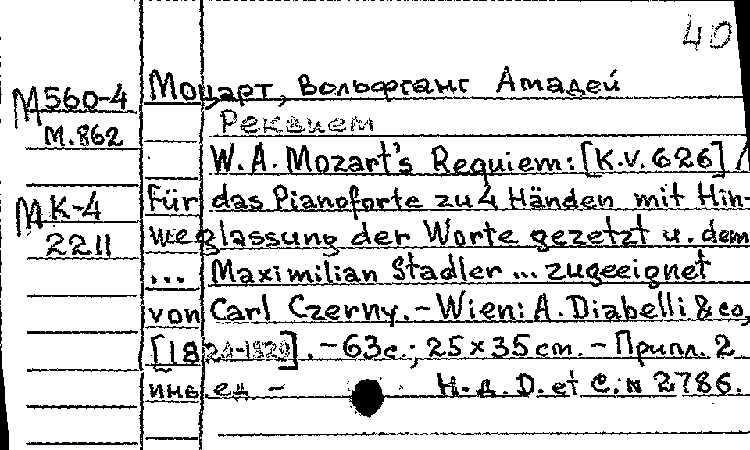 40
М560-4 Моцарт, Вольфганг Амадей
М.862 Реквием
W. A. Mozart's Requiem: [K.V. 626] /
МК-4 für das Pianoforte zu 4 Händen mit Hin-
2211 weglassung der Worte gezetzt u. dem
... Maximilian Stadler ... zugeeignet
von Carl Czerny. – Wien: A. Diabelli & co,
[1824-1829]. – 63с.; 25×35 cm. – Припл. 2
инв. ед – Н. д. D. et C. № 2786.